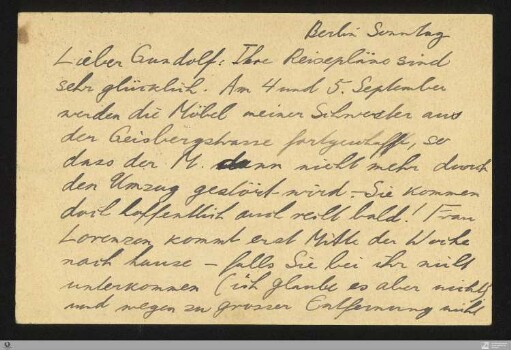 Berlin Sonntag
Lieber Gundolf: Ihre Reisepläne sind
sehr glücklich. Am 4 und 5. September
werden die Möbel meiner Schwester aus
der Geisbergstrasse fortgeschafft, so
dass der M. dann nicht mehr durch
den Umzug gestört wird. – Sie kommen
doch hoffentlich auch recht bald! Frau
Lorenzen kommt erst Mitte der Woche
nach hause – falls Sie bei ihr nicht
unterkommen (ich glaube es aber nicht)
und wegen zu grosser Entfernung nicht